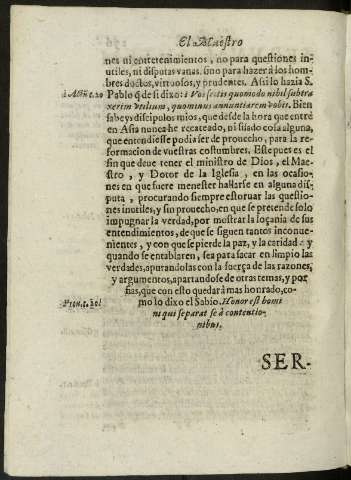 El Maestro
nes ni entretenimientos, no para questiones in-
utiles, ni disputas vanas. sino para hazer à los hom-
bres doctos, virtuosos, y prudentes. Assi lo hazia S.
à Actũ c. 20 Pablo q̃ de si dixo: Vos scitis quomodo nihil subtra
xerim vtilium, quominus annuntiarem vobis. Bien
sabeys discipulos mios, que desde la hora que entrè
en Asia nunca he recateado, ni sisado cosa alguna,
que entendiesse podia ser de prouecho, para la re-
formacion de vuestras costumbres. Este pues es el
fin que deue tener el ministro de Dios, el Mae-
stro, y Dotor de la Iglesia, en las ocasio-
nes en que fuere menester hallarse en alguna dis-
puta, procurando siempre estoruar las questio-
nes inutiles, y sin prouecho, en que se pretende solo
impugnar la verdad, por mostrar la loçania de sus
entendimientos, de que se siguen tantos inconue-
nientes, y con que se pierde la paz, y la caridad: y
quando se entablaren, sea para sacar en limpio las
verdades, apurandolas con la fuerça de las razones,
y argumentos, apartandose de otras temas, y por
fias, que con esto quedarà mas honrado, co-
Prou. c. 20 mo lo dixo el Sabio. Honor est homi
ni qui separat se à contentio-
nibus.
SER-